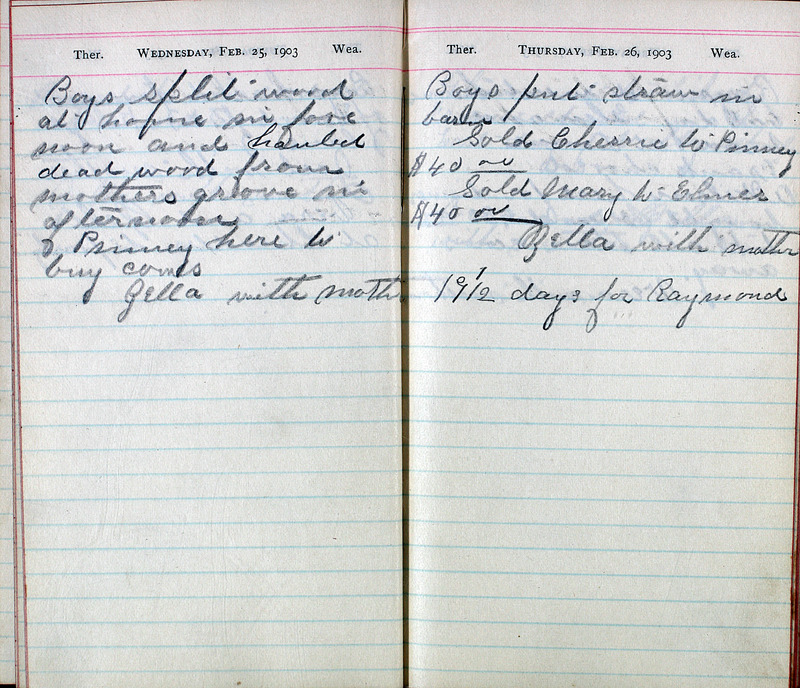 Ther. Wednesday, Feb. 25, 1903 Wea.
Boys split wood
at home in fore
noon and hauled
dead wood from
mothers groove in
afternoon
Pinney here to
buy cows
Zella with moth
Ther. Thursday, Feb. 26, 1903 Wea.
Boys put straw in
barn
Sold Cherrie to Pinney
$40 00
Sold Mary to Elmer
$40 00
Zella with mother
19 1/2 days for Raymond